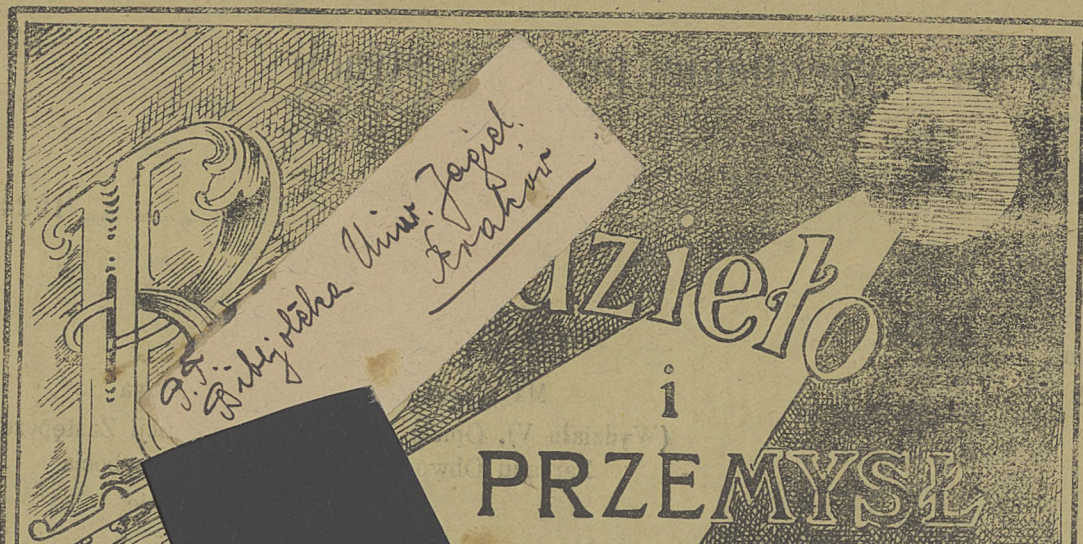 P.T.
Bibljoteka Uniw. Jagiel.
Kraków
R dzieło
i
PRZEMYSŁ